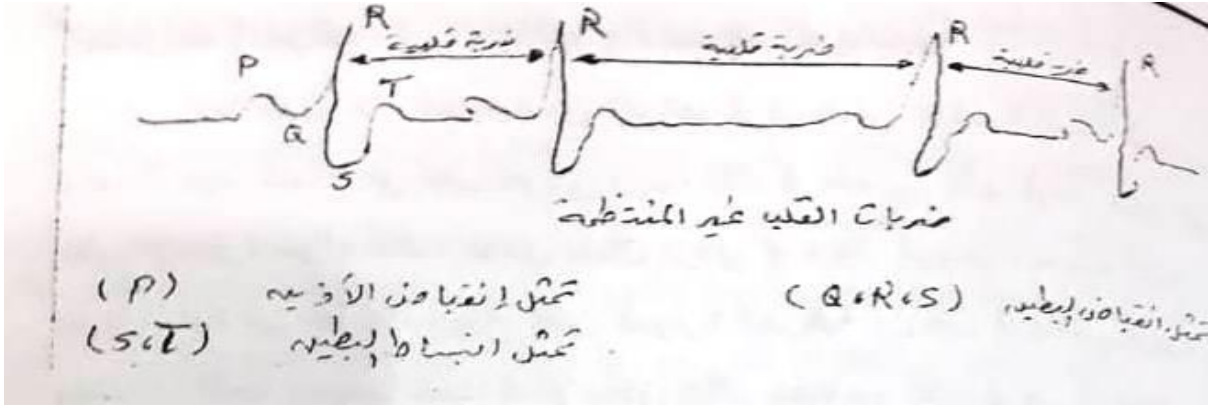 R R R R
ضربة قلبية ضربة قلبية ضربة قلبية
P T
Q
S
ضربات القلب غير المنتظمة
(P) تمثل إنقباض الأذين (Q،R،S) تمثل انقباض البطين
(S،T) تمثل انبساط البطين